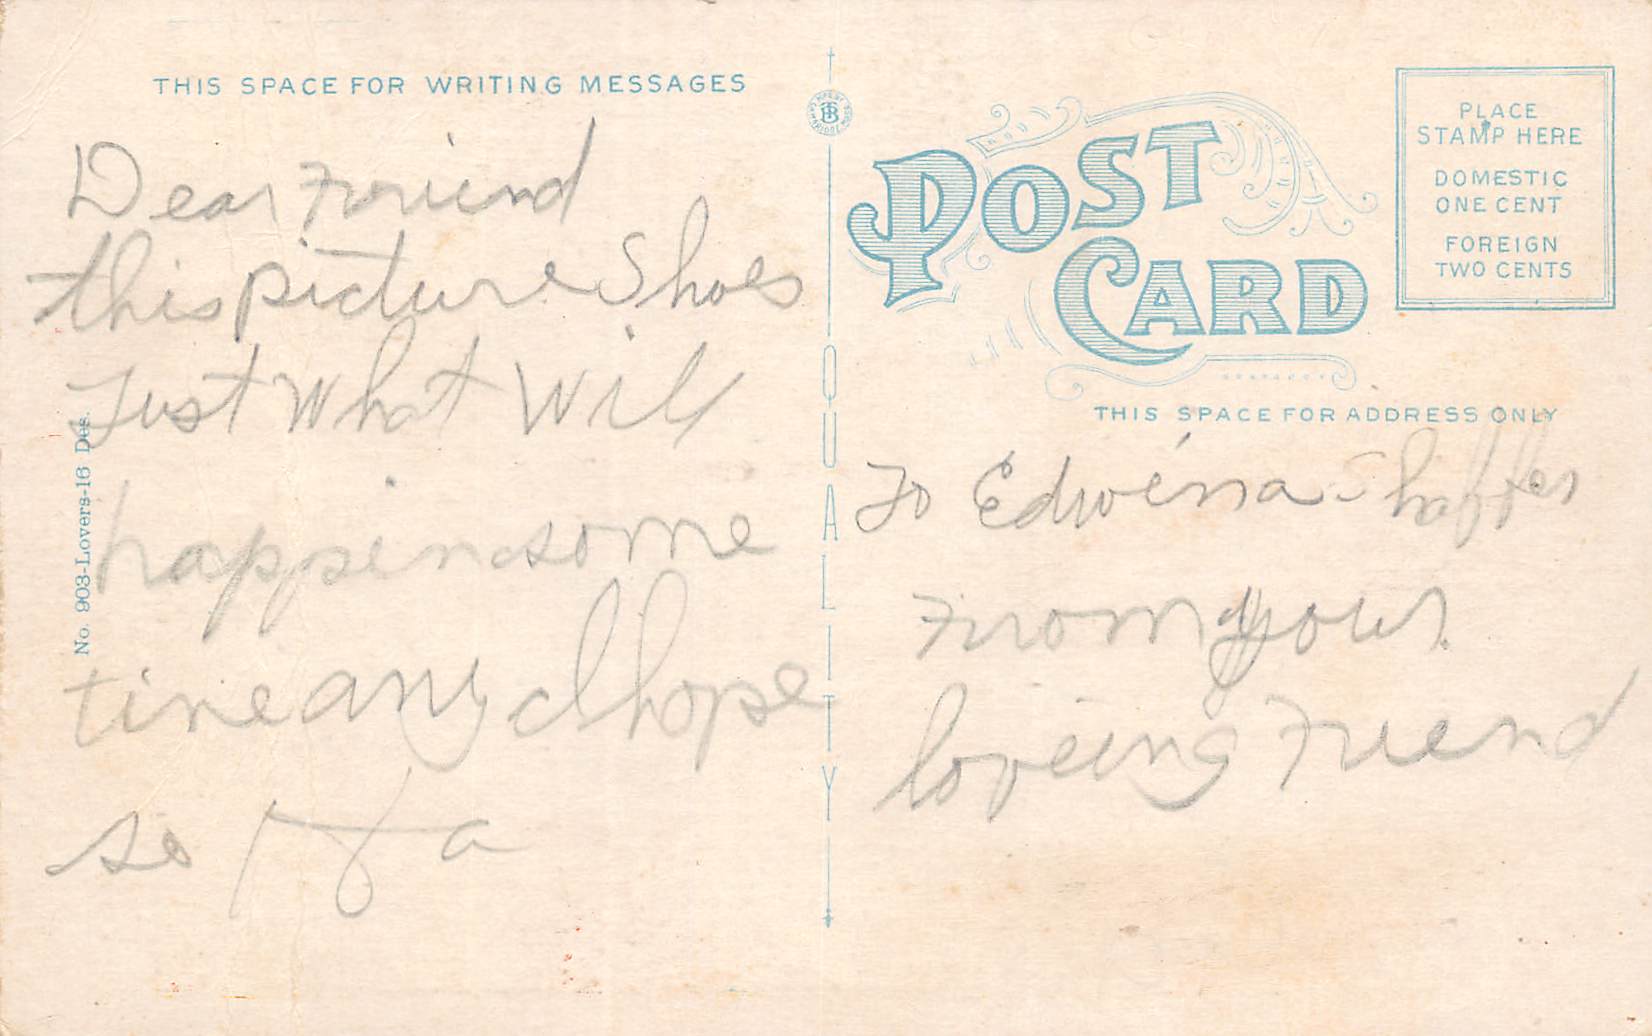 THIS SPACE FOR WRITING MESSAGES
Dear Friend
this picture Shoes
Just What Will
happen some
time any I hope
so Ha
No. 903-Lovers-16 Des.
QUALITY
POST
CARD
PLACE
STAMP HERE
DOMESTIC
ONE CENT
FOREIGN
TWO CENTS
THIS SPACE FOR ADDRESS ONLY
To Edwina Shaffer
From your
loveing Friend